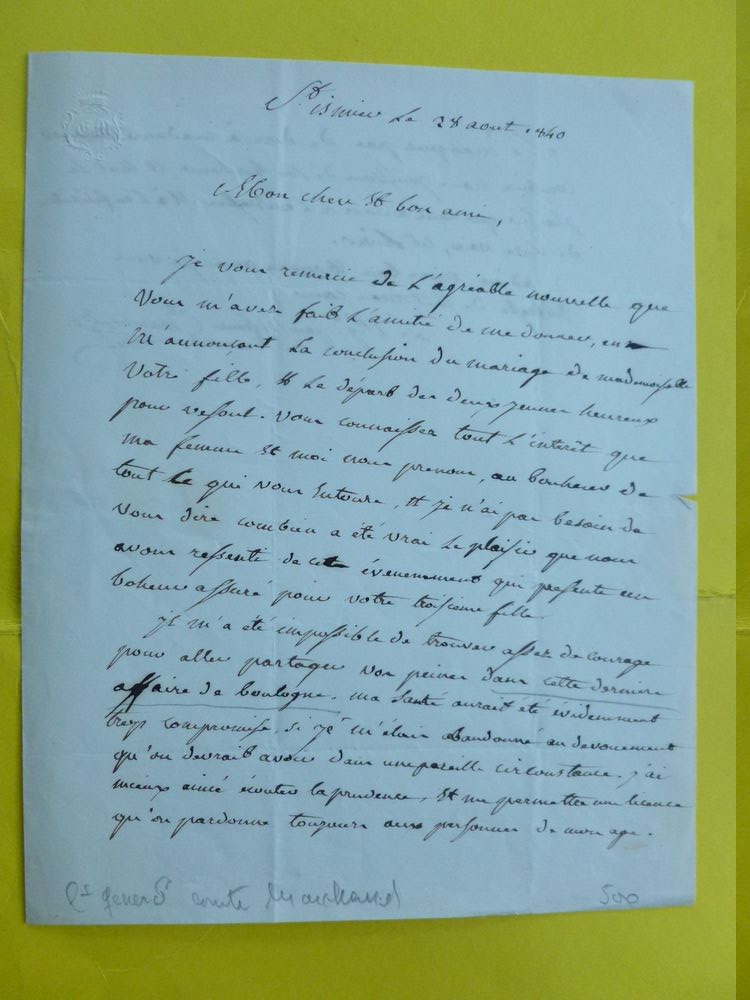 St ismier le 28 aout 1840
Mon cher et bon ami,
je vous remercie de l'agréable nouvelle que
vous m'avez fait l'amitié de me donner, en
m'annoncant la conclusion du mariage de mademoiselle
votre fille, et le départ des deux jeunes heureux
pour vesoul. vous connaissez tout l'interêt que
ma femme et moi nous prenons, au bonheur de
tout ce qui vous entoure, et je n'ai pas besoin de
vous dire combien a été vrai le plaisir que nous
avons ressenti de cet évenement qui présente un
boheur assuré pour votre troisieme fille.
il m'a été impossible de trouver assez de courage
pour aller partager vos peines dans cette derniere
affaire de boulogne. ma santé aurait été évidemment
trop compromise, si je m'étais abandonné au devouement
qu'on devrait avoir dans une pareille circonstance. j'ai
mieux aimé écouter la prudence, et me permettre une licence
qu'on pardonne toujours aux personnes de mon age.
Ls general comte Marchand 500